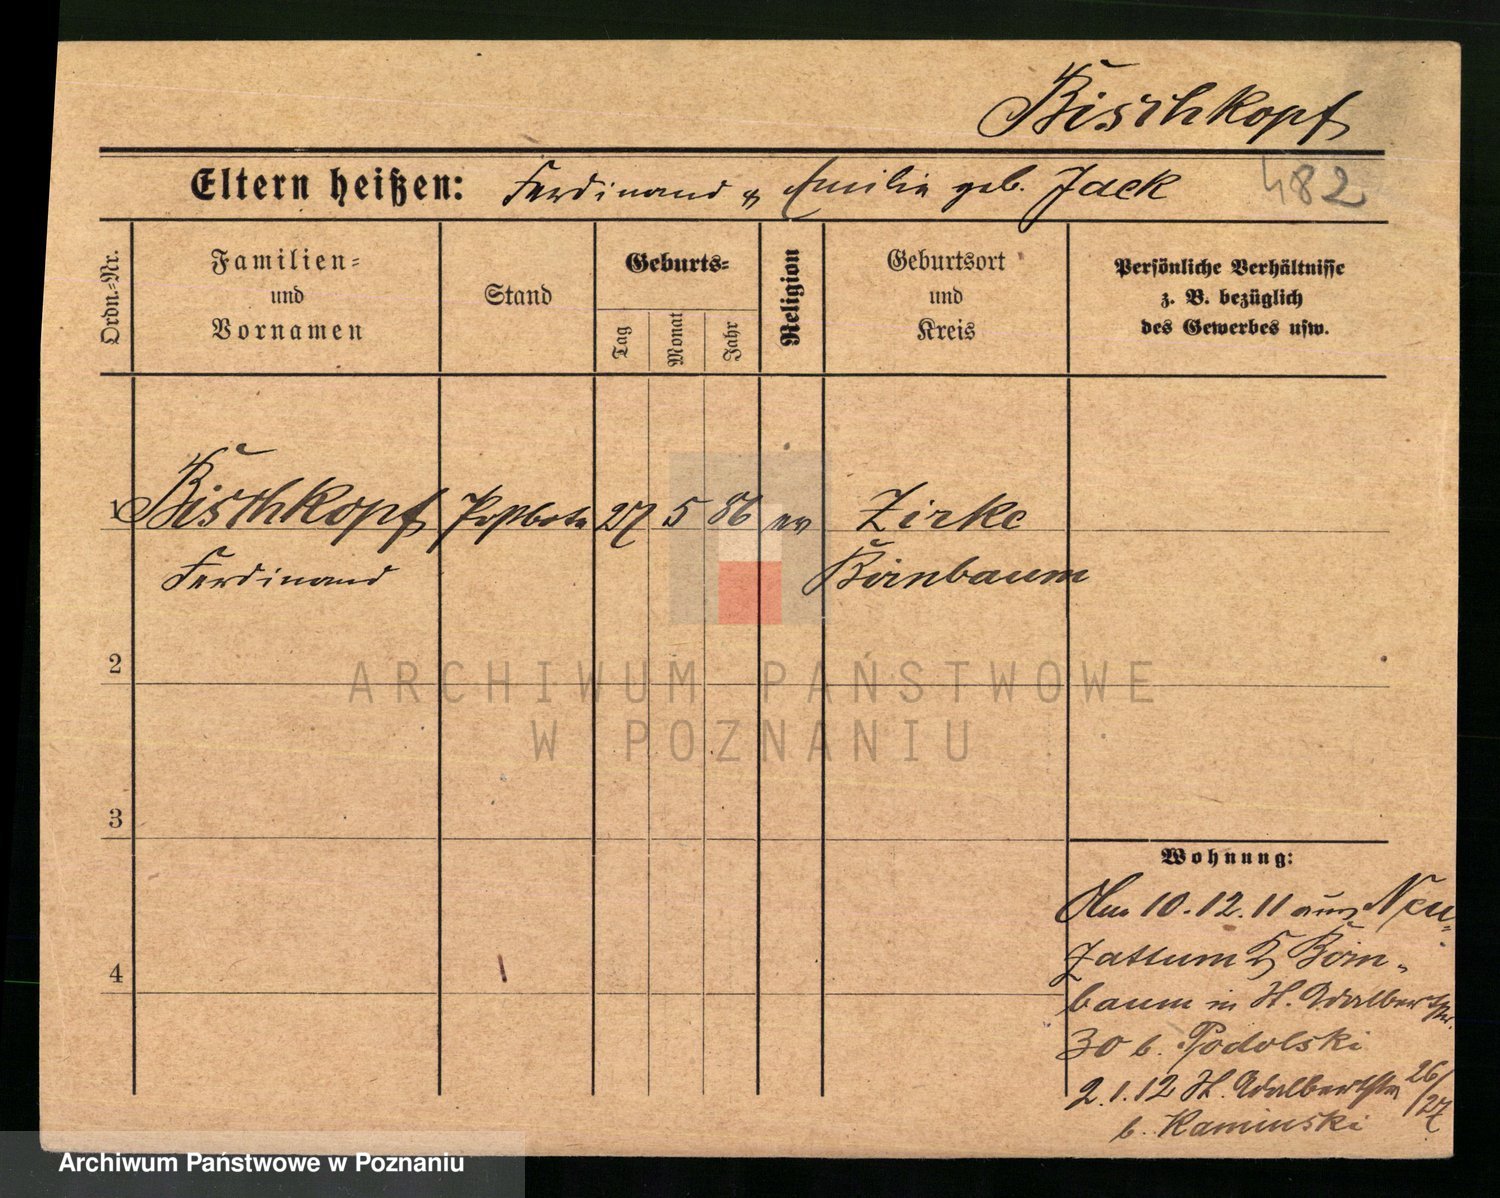 Bischkopf
Eltern heißen: Ferdinand u Emilie geb. Jack
482
Ordn.-Nr.
Familien-
und
Vornamen
Stand
Geburts-
Tag
Monat
Jahr
Religion
Geburtsort
und
Kreis
Persönliche Verhältnisse
z. B. bezüglich
des Gewerbes usw.
1 Bischkopf Postbote 27 5 86 ev Zirke
Ferdinand Birnbaum
2
3
4
ARCHIWUM PAŃSTWOWE
W POZNANIU
Wohnung:
Am 10.12.11 aus Neu-
zattum K Birn-
baum in St. Adalbertstr.
30 b. Podolski
2.1.12 St. Adalbertstr 26/27
b. Kaminski
Archiwum Państwowe w Poznaniu